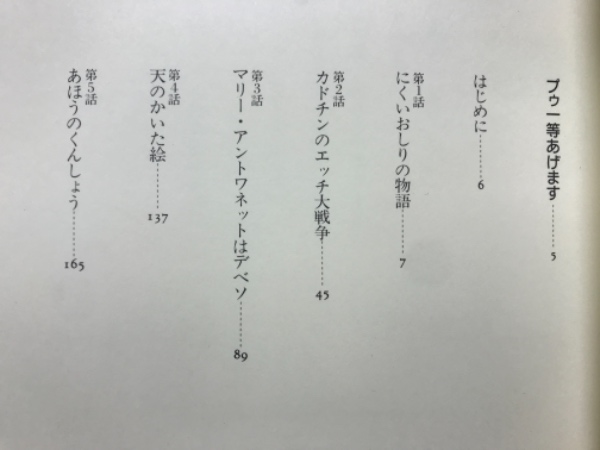 プゥ一等あげます…………5
はじめに…………6
第1話
にくいおしりの物語…………7
第2話
カドチンのエッチ大戦争…………45
第3話
マリー・アントワネットはデベソ…………89
第4話
天のかいた絵…………137
第5話
あほうのくんしょう…………165